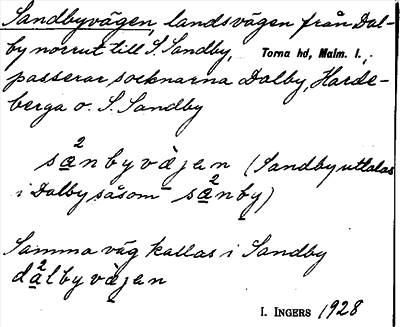 Sandbyvägen, landsvägen från Dal-
by norrut till S. Sandby, Torna hd, Malm. l.,
passerar socknarna Dalby, Harde-
berga o. S. Sandby
sa²nbyvàjan (Sandby uttalas
i Dalby såsom sa²nby)
Samma väg kallas i Sandby
da²lbyvàjan
I. INGERS 1928